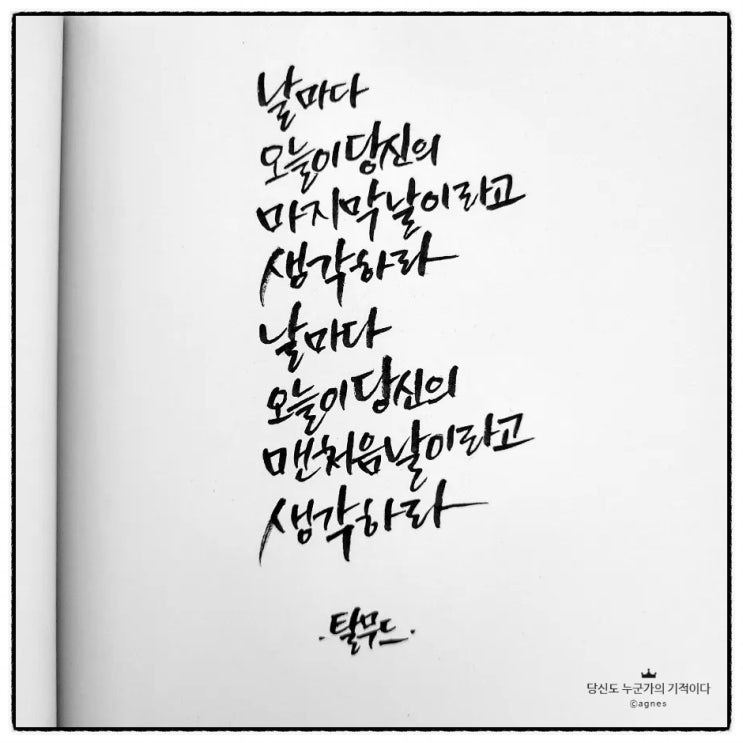 날마다
오늘이 당신의
마지막 날이라고
생각하라
날마다
오늘이 당신의
맨 처음 날이라고
생각하라
· 탈무드 ·
당신도 누군가의 기적이다
©agnes